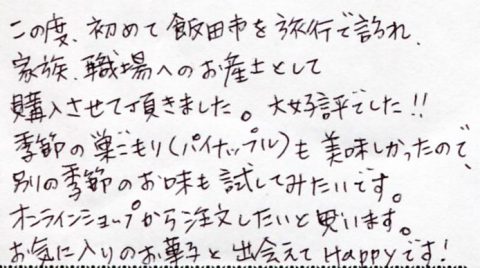 この度、初めて飯田市を旅行で訪れ、
家族、職場へのお産土として
購入させて頂きました。大好評でした!!
季節の巣ごもり(パイナップル)も美味しかったので、
別の季節のお味も試してみたいです。
オンラインショップから注文したいと思います。
お気に入りのお菓子と出会えてHappyです!